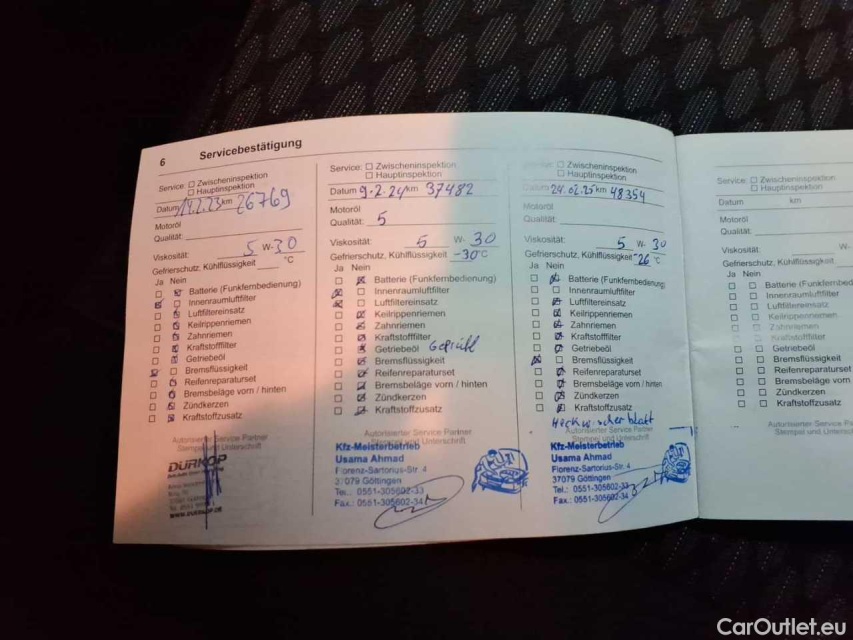 6 Servicebestätigung
Service: ☐ Zwischeninspektion
☐ Hauptinspektion
Datum 14.2.23 km 26769
Motoröl
Qualität:
Viskosität: 5 W- 30
Gefrierschutz, Kühlflüssigkeit °C
Ja Nein
Batterie (Funkfernbedienung)
Innenraumluftfilter
Luftfiltereinsatz
Keilrippenriemen
Zahnriemen
Kraftstofffilter
Getriebeöl
Bremsflüssigkeit
Reifenreparaturset
Bremsbeläge vorn / hinten
Zündkerzen
Kraftstoffzusatz
Autorisierter Service Partner
Stempel und Unterschrift
DÜRKOP
Service: ☐ Zwischeninspektion
☐ Hauptinspektion
Datum 9.2.24 km 37482
Motoröl
Qualität: 5
Viskosität: 5 W- 30
Gefrierschutz, Kühlflüssigkeit -30°C
Ja Nein
Batterie (Funkfernbedienung)
Innenraumluftfilter
Luftfiltereinsatz
Keilrippenriemen
Zahnriemen
Kraftstofffilter
Getriebeöl Geprüft
Bremsflüssigkeit
Reifenreparaturset
Bremsbeläge vorn / hinten
Zündkerzen
Kraftstoffzusatz
Autorisierter Service Partner
Stempel und Unterschrift
Kfz-Meisterbetrieb
Usama Ahmad
Florenz-Sartorius-Str. 4
37079 Göttingen
Tel.: 0551-305602-33
Fax.: 0551-305602-34
☐ Zwischeninspektion
☐ Hauptinspektion
Datum 24.02.25 km 48354
Motoröl
Qualität:
Viskosität: 5 W- 30
Gefrierschutz, Kühlflüssigkeit -26 °C
Ja Nein
Batterie (Funkfernbedienung)
Innenraumluftfilter
Luftfiltereinsatz
Keilrippenriemen
Zahnriemen
Kraftstofffilter
Getriebeöl
Bremsflüssigkeit
Reifenreparaturset
Bremsbeläge vorn / hinten
Zündkerzen
Kraftstoffzusatz
Heckwischerblatt
Autorisierter Service Partner
Stempel und Unterschrift
Kfz-Meisterbetrieb
Usama Ahmad
Florenz-Sartorius-Str. 4
37079 Göttingen
Tel.: 0551-305602-33
Fax.: 0551-305602-34
Service: ☐ Zwischeninspektion
☐ Hauptinspektion
Datum km
Motoröl
Qualität:
Viskosität: W-
Gefrierschutz, Kühlflüssigkeit
Ja Nein
Batterie (Funkfernbed
Innenraumluftfilter
Luftfiltereinsatz
Keilrippenriemen
Zahnriemen
Kraftstofffilter
Getriebeöl
Bremsflüssigkeit
Reifenreparaturset
Bremsbeläge vorn
Zündkerzen
Kraftstoffzusatz
Autorisierter Service
Stempel und Untersc
CarOutlet.eu